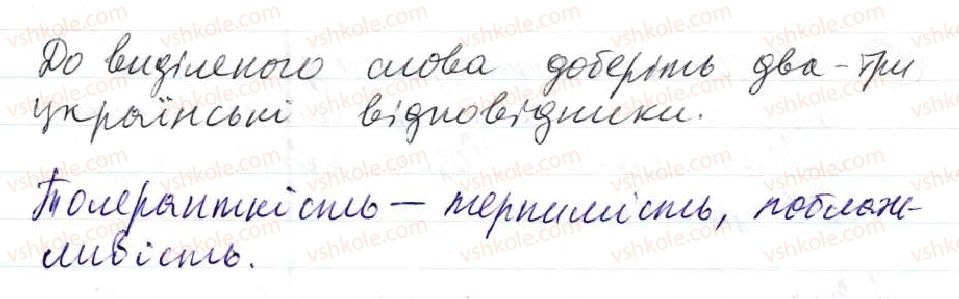 До виділеного слова доберіть два-три
українські відповідники.
Толерантність – терпимість, поблаж-
ливість.